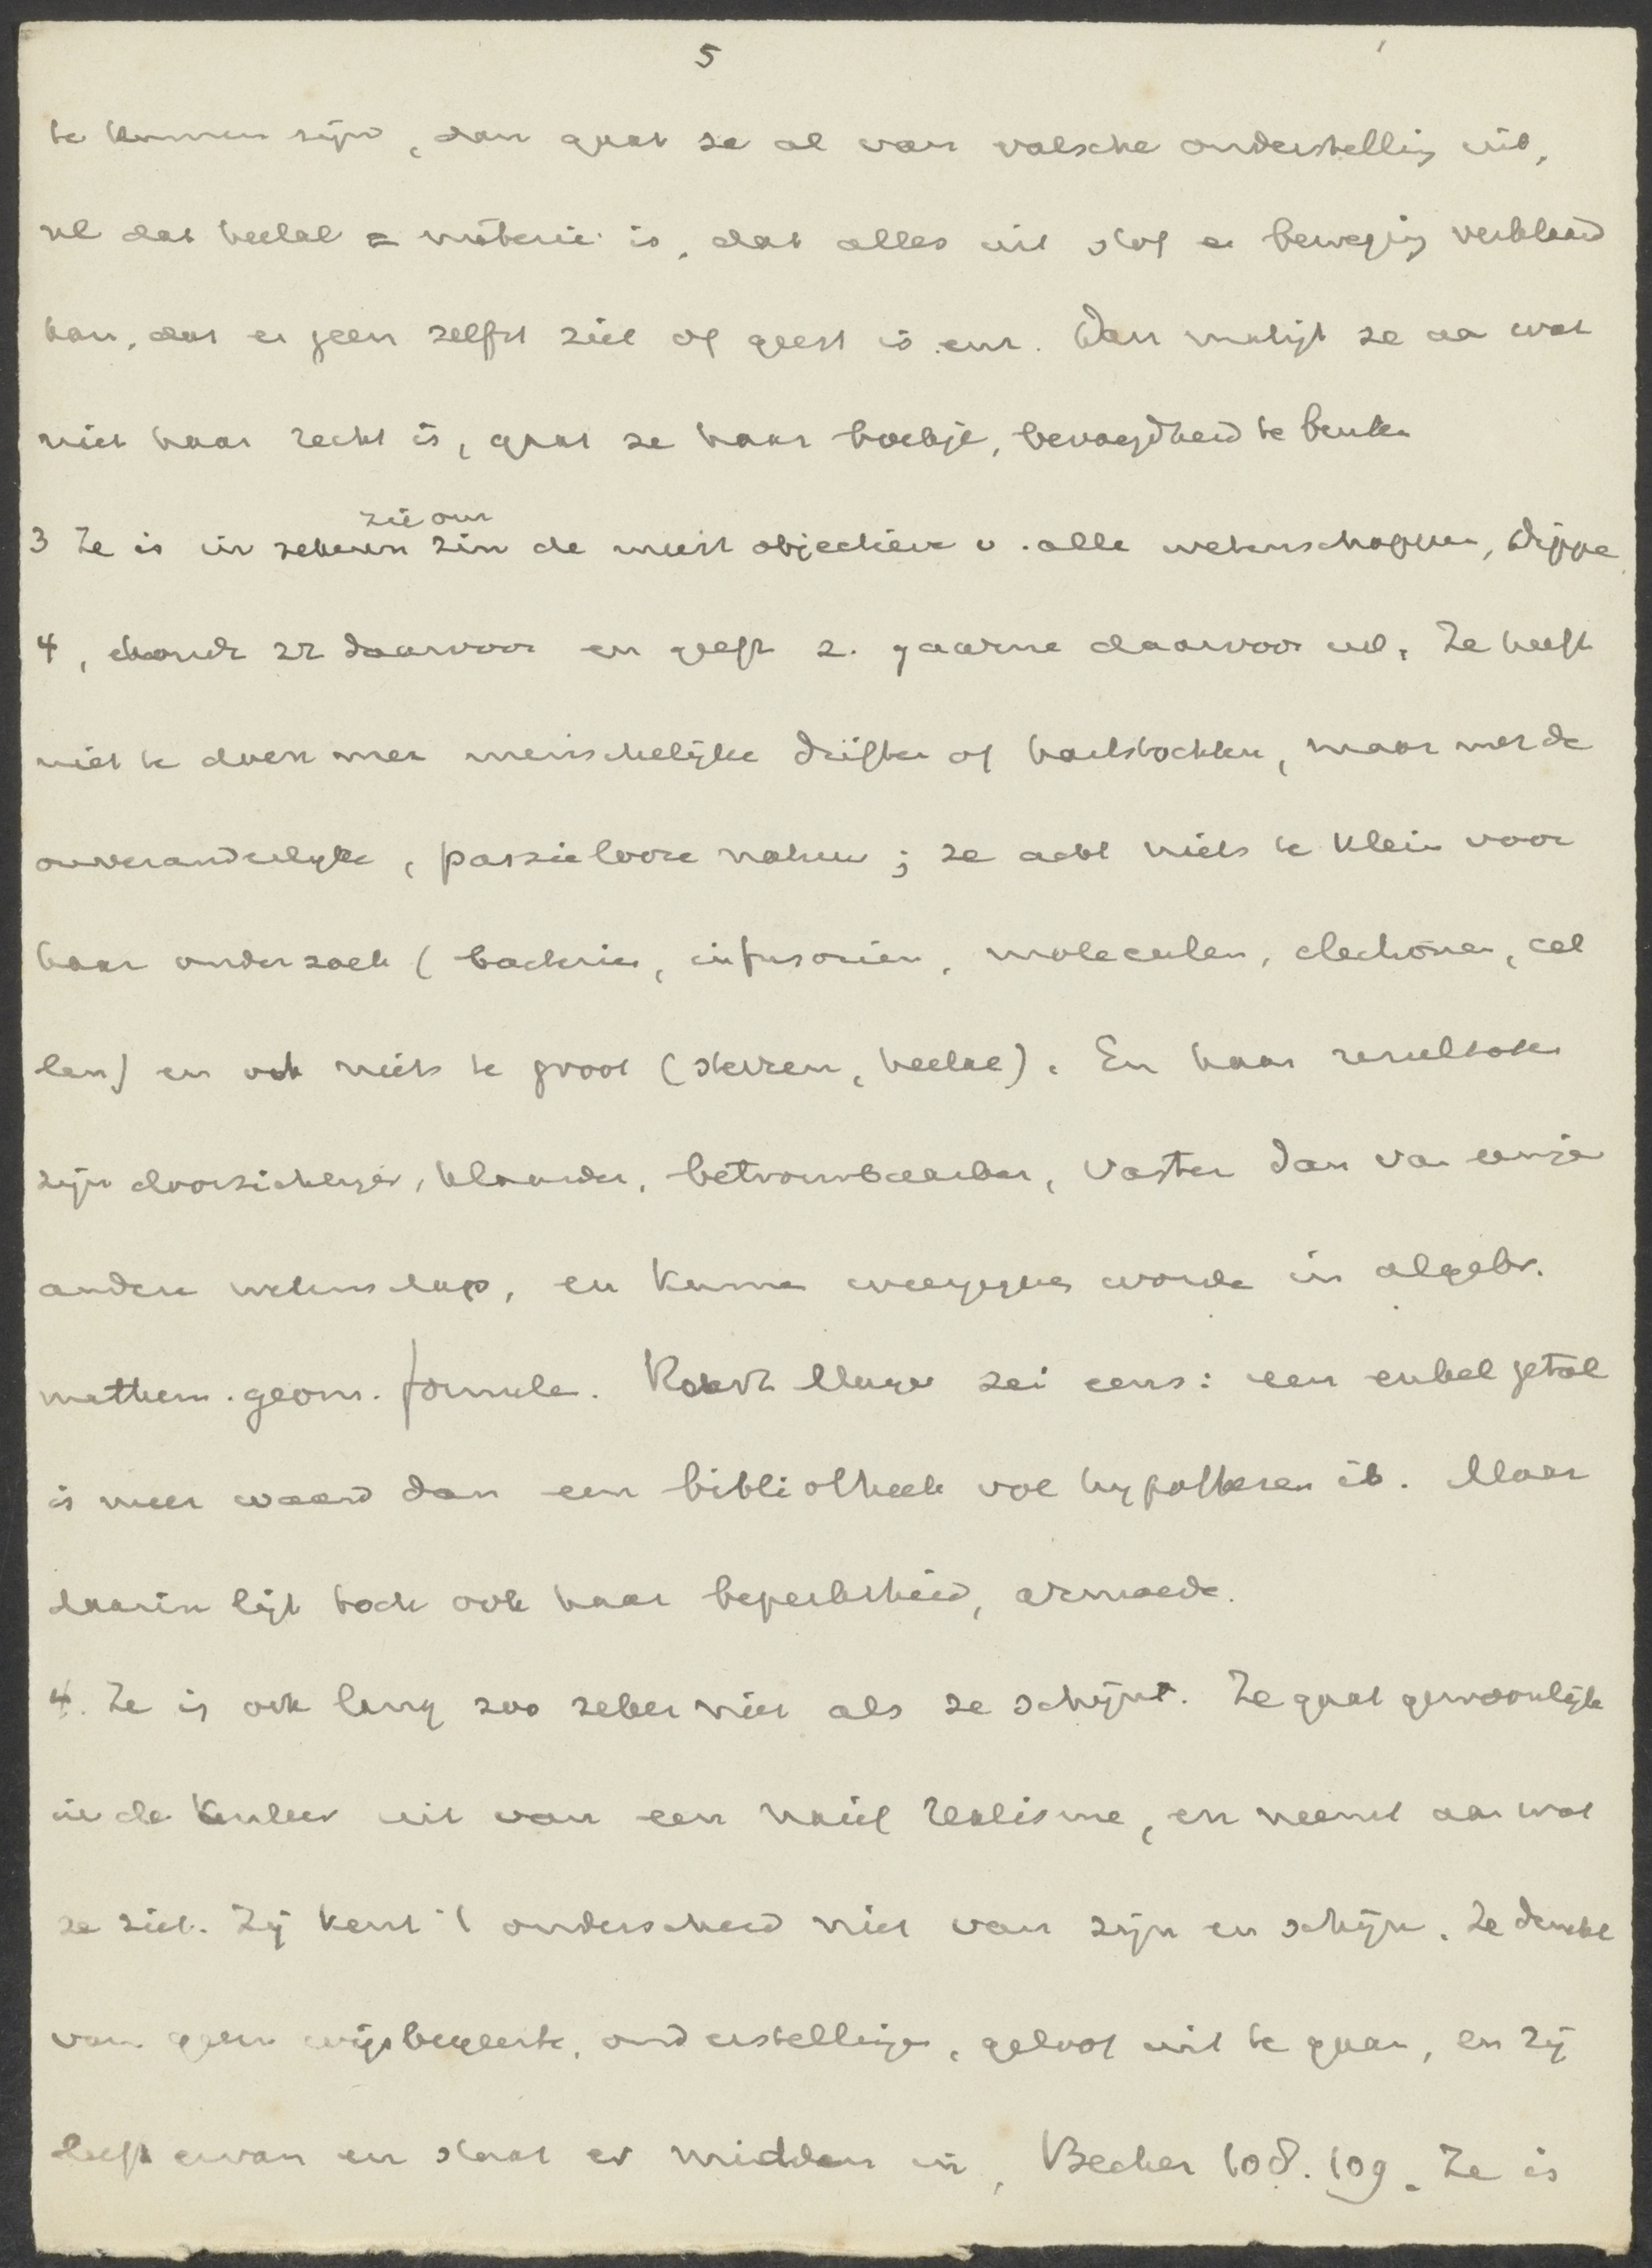 5
te kunnen zijn, dan gaat ze al van valsche onderstelling uit,
nl dat heelal = materie is, dat alles uit stof en beweging verklaard
kan, dat er geen zelfst ziel of geest is enz. Dan matigt ze aa wat
niet haar recht is, gaat ze haar boekje, bevoegdheid te buiten
zie om
3 Ze is in zekeren zin de meest objectieve v. alle wetenschappen, Dippe
4, houdt zz daarvoor en geeft z. gaarne daarvoor uit. Ze heeft
niet te doen met menschelijke driften of hartstochten, maar met de
onveranderlyke, passielooze natuur; ze acht niets te klein voor
haar onderzoek (bacterien, infusorien, moleculen, electronen, cel
len) en ook niets te groot (sterren, heelal). En haar resultaten
zijn doorzichtiger, klaarder, betrouwbaarder, vaster dan van eenige
andere wetenschap, en kunnen weergegeven worde in algebr.
mathem. geom. formule. Robert Mayer zei eens: een enkel getal
is meer waard dan een bibliotheek vol hypothesen is. Maar
daarin ligt toch ook haar beperktheid, armoede.
4. Ze is ook lang zoo zeker niet als ze schijnt. Ze gaat gewoonlijk
in de kenleer uit van een naief realisme, en neemt aan wat
ze ziet. Zij kent 't onderscheid niet van zijn en schijn. Ze denkt
van geen wijsbegeerte, onderstellingen, geloof uit te gaan, en zij
leeft ervan en staat er midden in, Becher 108. 109. Ze is